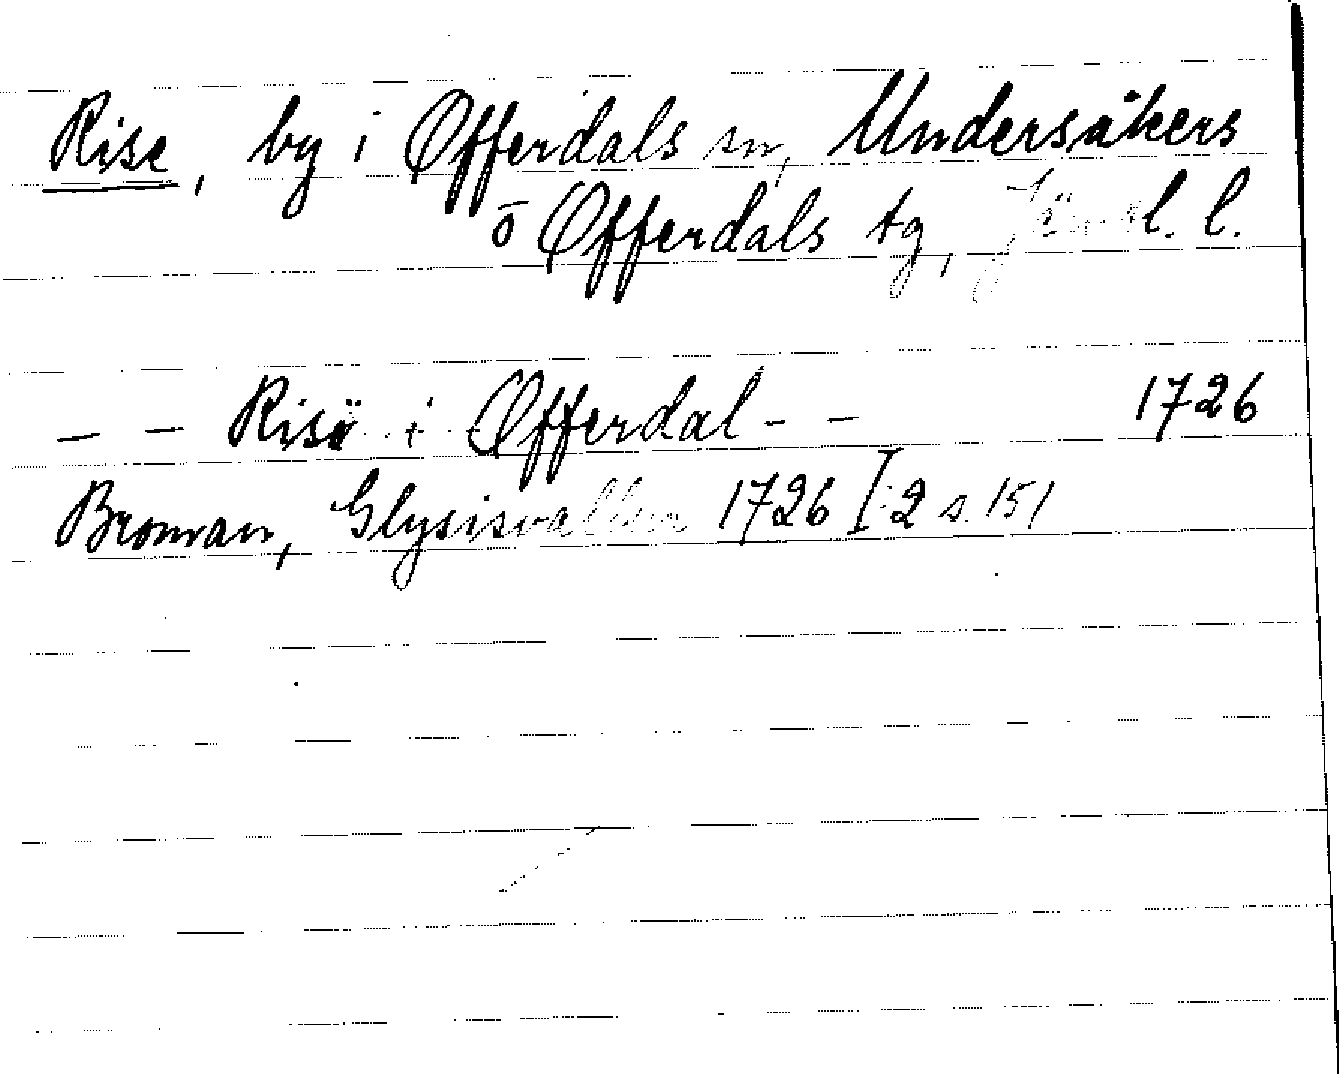 Rise, by i Offerdals sn, Undersåkers
o Offerdals tg, Jämtl. l.
— — Riså i Offerdal - — 1726
Broman, Glysisvallur 1726 I:2 s. 151